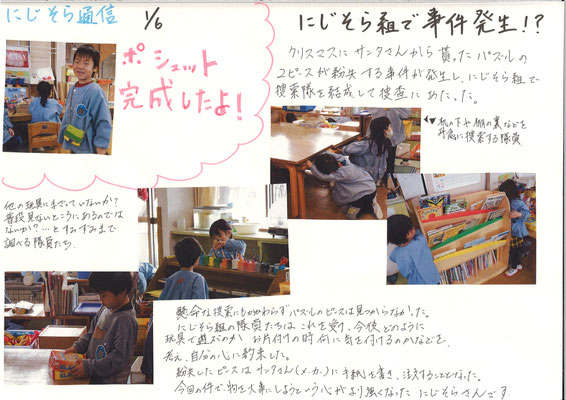 にじそら通信
1/6
ポシェット
完成したよ!
にじそら組で事件発生!?
クリスマスにサンタさんから貰ったパズルの
2ピースが紛失する事件が発生し、にじそら組で
捜索隊を結成して捜査にあたった。
机の下や棚の裏などを
丹念に捜索する隊員
他の玩具にまざっていないか?
普段見ないところにあるのでは
ないか?…とすみずみまで
調べる隊員たち。
懸命な捜索にもかかわらずパズルのピースは見つからなかった。
にじそら組の隊員たちはこれを受け、今後どのように
玩具で遊ぶのか お片付けの時何に気を付けるのかなどを
考え、自分の心に約束した。
紛失したピースはサンタさん(メーカー)に手紙を書き、注文することとなった。
今回の件で、物を大事にしようという心がより強くなった にじそらさんです。